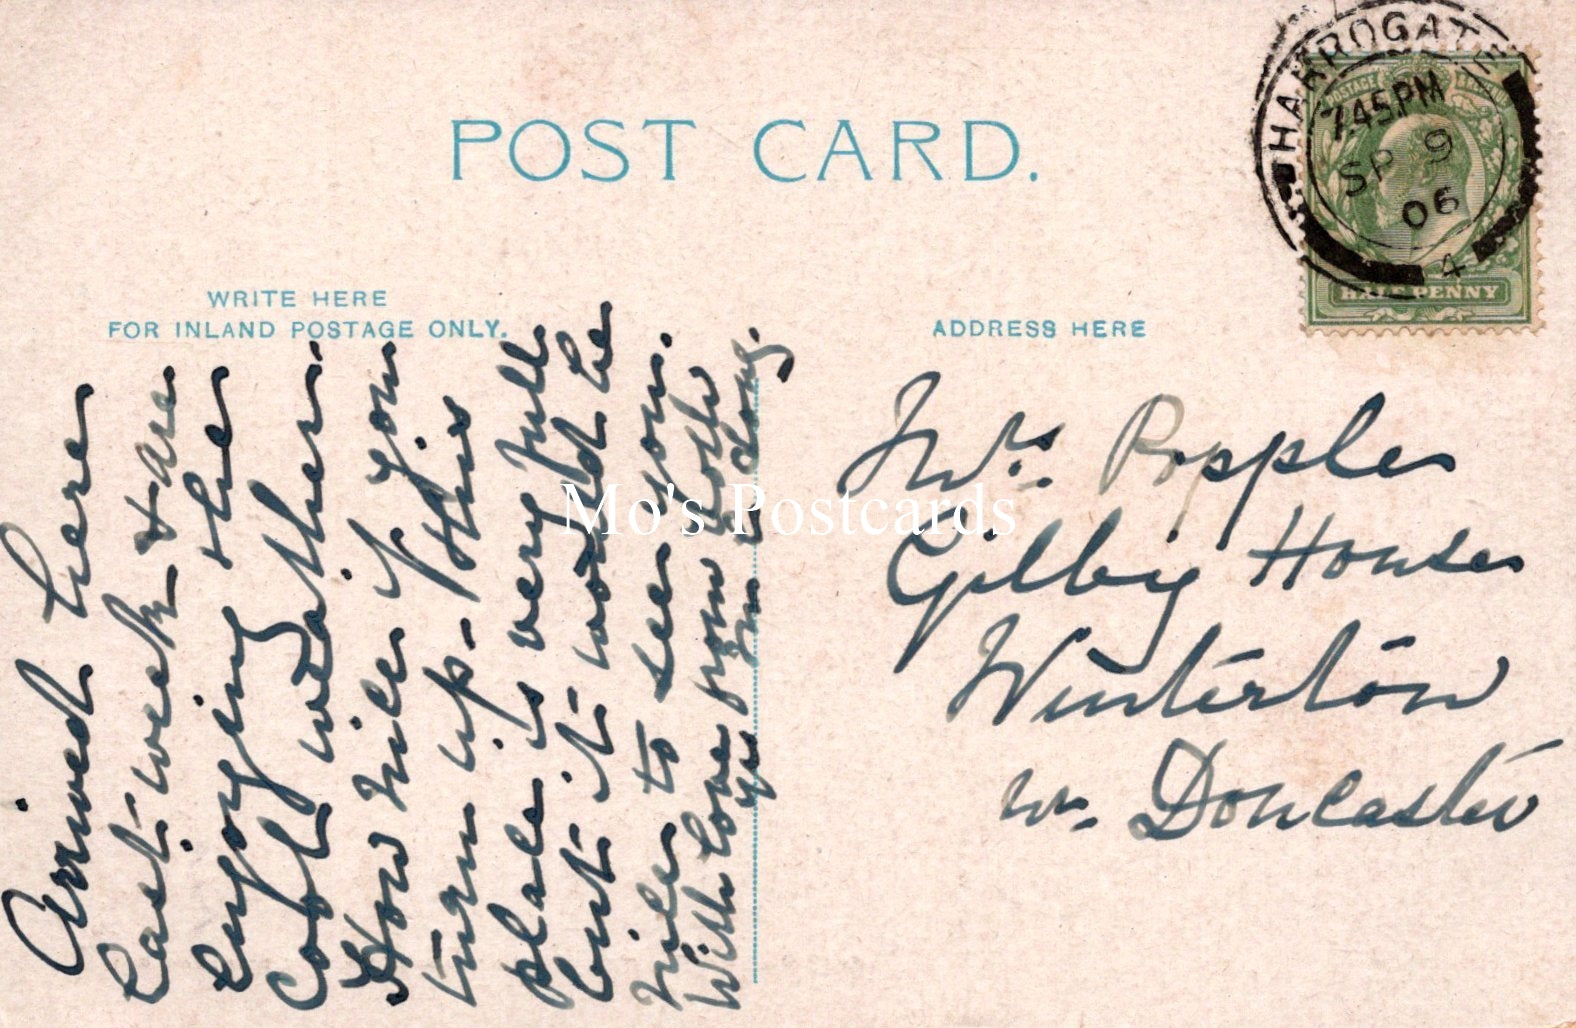 POST CARD.
WRITE HERE
FOR INLAND POSTAGE ONLY.
ADDRESS HERE
HARROGATE
7.45PM
SP 9
06
4
POSTAGE
HALF PENNY
Arrived here
last week & are
enjoying the
cooler weather.
How nice if you
turn up - this
place is very full
but it would be
nice to see you.
With love from both
Mrs Popple
Gilbey House
Winterton
nr. Doncaster
Mo's Postcards